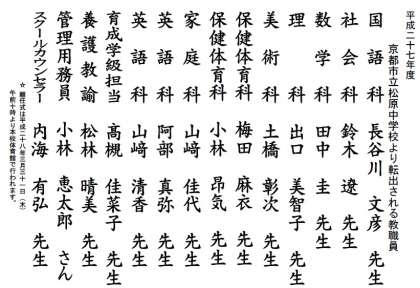 平成二十七年度
京都市立松原中学校より転出される教職員
国語科 長谷川 文彦 先生
社会科 鈴木 遼 先生
数学科 田中 圭 先生
理科 出口 美智子 先生
美術科 土橋 彰次 先生
保健体育科 梅田 麻衣 先生
保健体育科 小林 昂気 先生
家庭科 山﨑 佳代 先生
英語科 阿部 真弥 先生
英語科 山﨑 清香 先生
育成学級担当 高槻 佳菜子 先生
養護教諭 松林 晴美 先生
管理用務員 小林 恵太郎 さん
スクールカウンセラー 内海 有弘 先生
☆ 離任式は平成二十八年三月三十一日（木）
午前十時より本校体育館で行われます。